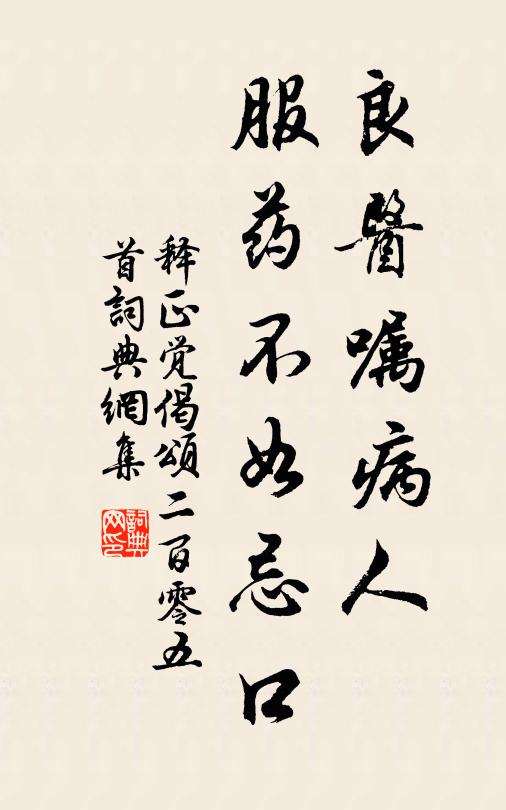 良醫嘱病人
服药不如忌口
释正觉偈頌二百零五
首詞典網集
詞典
网印